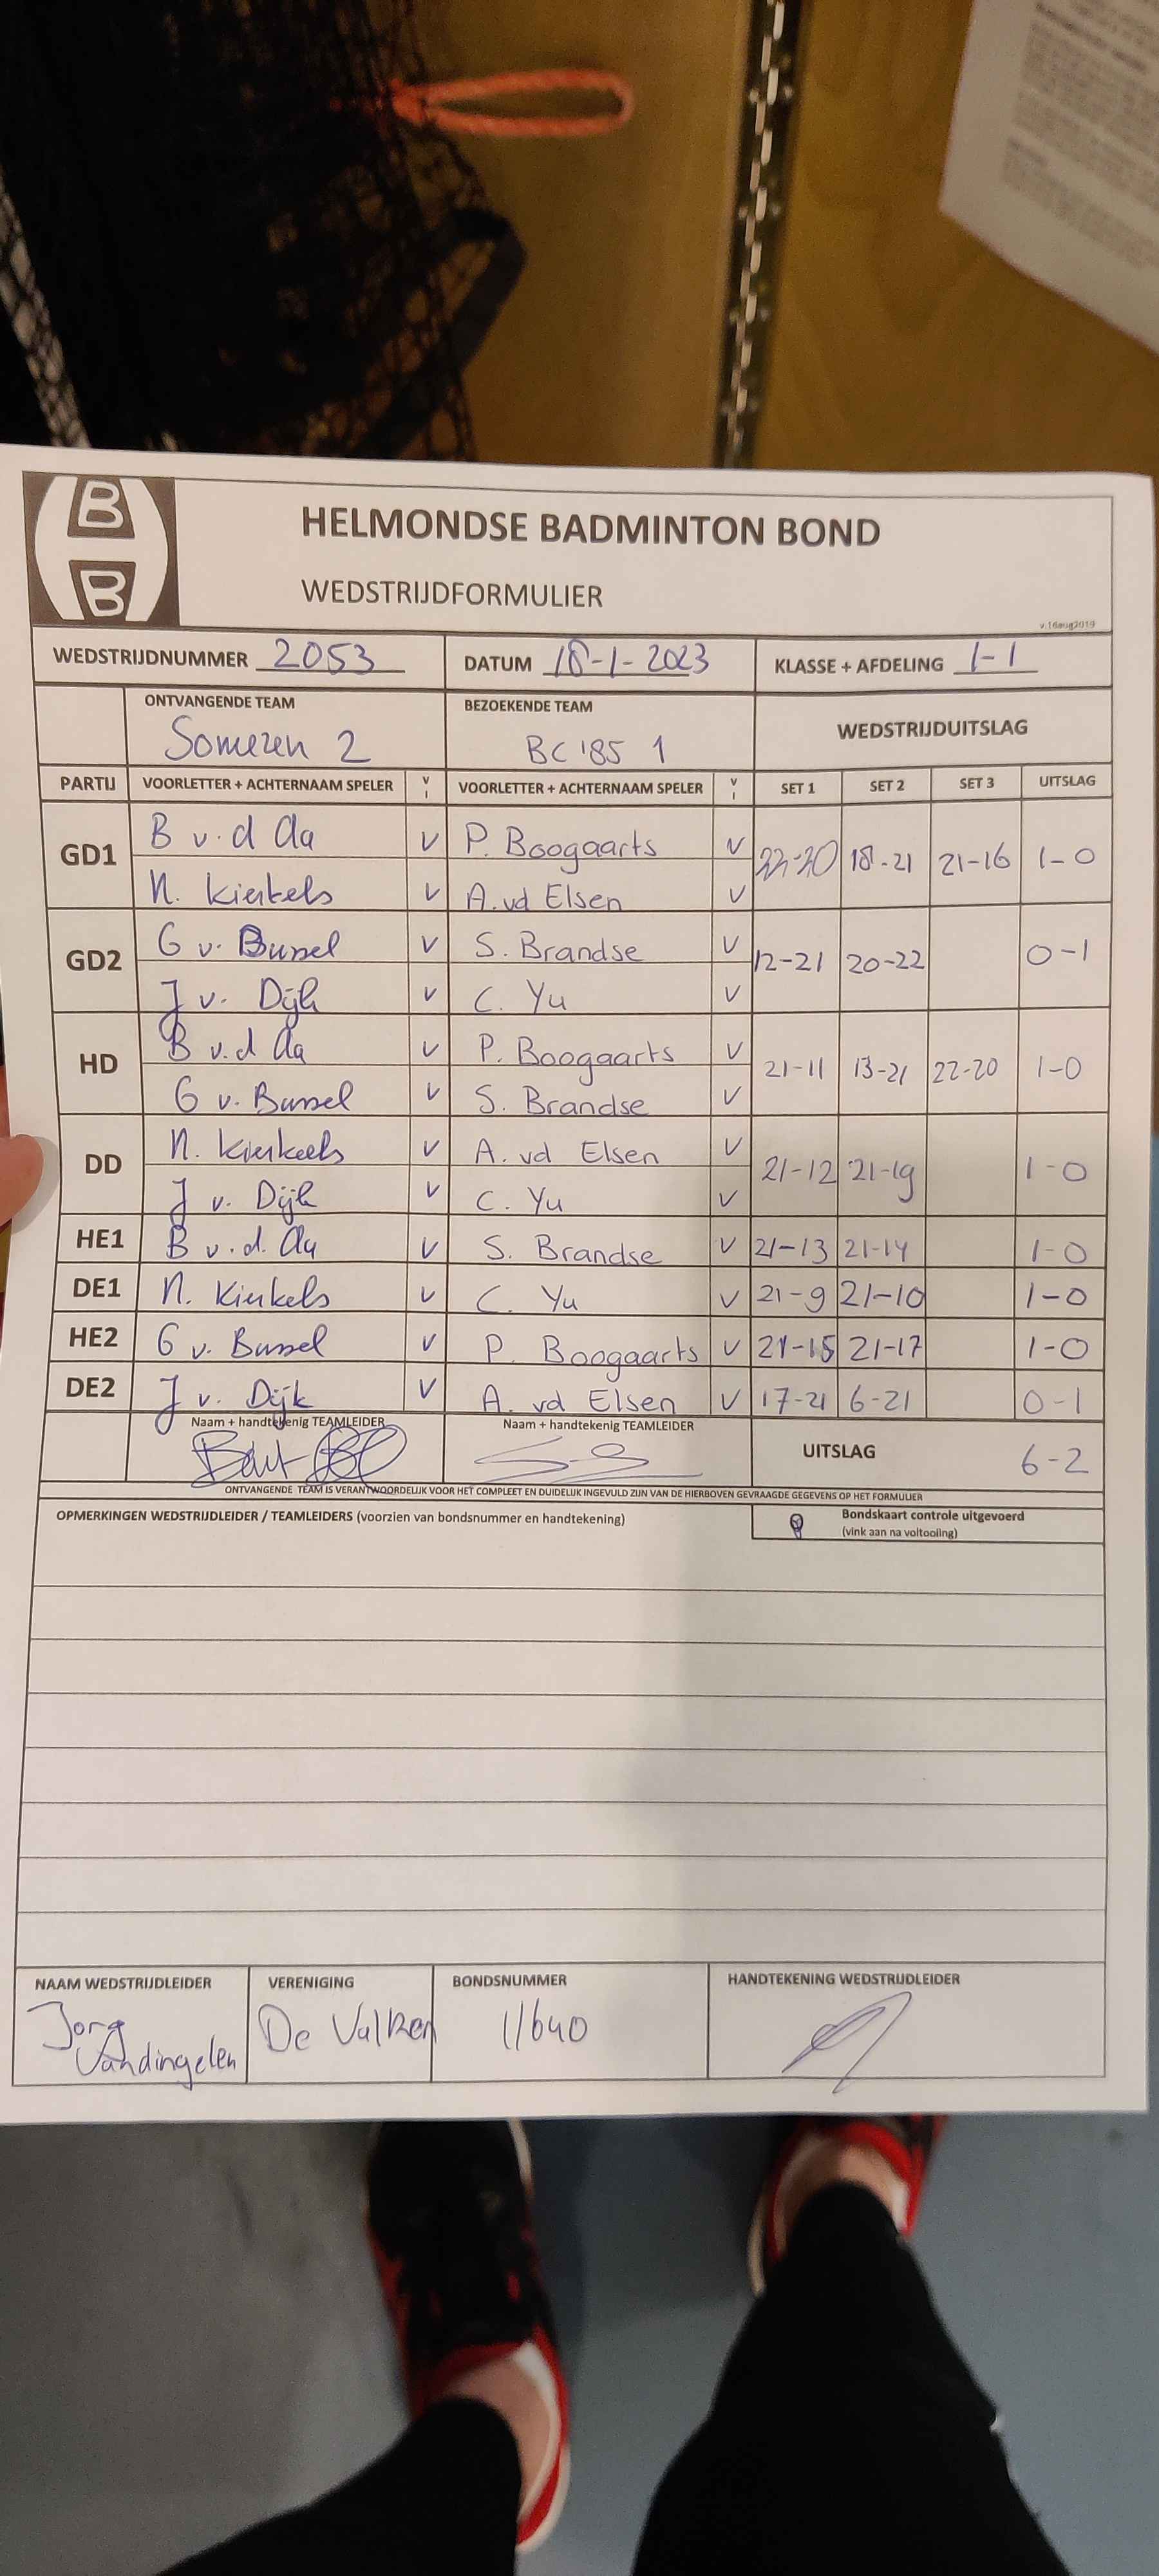 B
B
HELMONDSE BADMINTON BOND
WEDSTRIJDFORMULIER
v.16aug2019
WEDSTRIJDNUMMER 2053 DATUM 18-1-2023 KLASSE + AFDELING 1-1
ONTVANGENDE TEAM BEZOEKENDE TEAM WEDSTRIJDUITSLAG
Someren 2 BC '85 1
PARTIJ VOORLETTER + ACHTERNAAM SPELER V I VOORLETTER + ACHTERNAAM SPELER V I SET 1 SET 2 SET 3 UITSLAG
GD1 B v.d Aa V P. Boogaarts V 22-20 18-21 21-16 1-0
N. Kierkels V A. vd Elsen V
GD2 G v. Bussel V S. Brandse V 12-21 20-22 0-1
J v. Dijk V C. Yu V
HD B v.d Aa V P. Boogaarts V 21-11 13-21 22-20 1-0
G v. Bussel V S. Brandse V
DD N. Kierkels V A. vd Elsen V 21-12 21-19 1-0
J v. Dijk V C. Yu V
HE1 B v.d. Aa V S. Brandse V 21-13 21-14 1-0
DE1 N. Kierkels V C. Yu V 21-9 21-10 1-0
HE2 G v. Bussel V P. Boogaarts V 21-15 21-17 1-0
DE2 J v. Dijk V A. vd Elsen V 17-21 6-21 0-1
Naam + handtekenig TEAMLEIDER Naam + handtekenig TEAMLEIDER UITSLAG 6-2
Bart
ONTVANGENDE TEAM IS VERANTWOORDELIJK VOOR HET COMPLEET EN DUIDELIJK INGEVULD ZIJN VAN DE HIERBOVEN GEVRAAGDE GEGEVENS OP HET FORMULIER
OPMERKINGEN WEDSTRIJDLEIDER / TEAMLEIDERS (voorzien van bondsnummer en handtekening) Bondskaart controle uitgevoerd
(vink aan na voltooiing)
NAAM WEDSTRIJDLEIDER VERENIGING BONDSNUMMER HANDTEKENING WEDSTRIJDLEIDER
Jorg De Valken 11640
Vandingelen